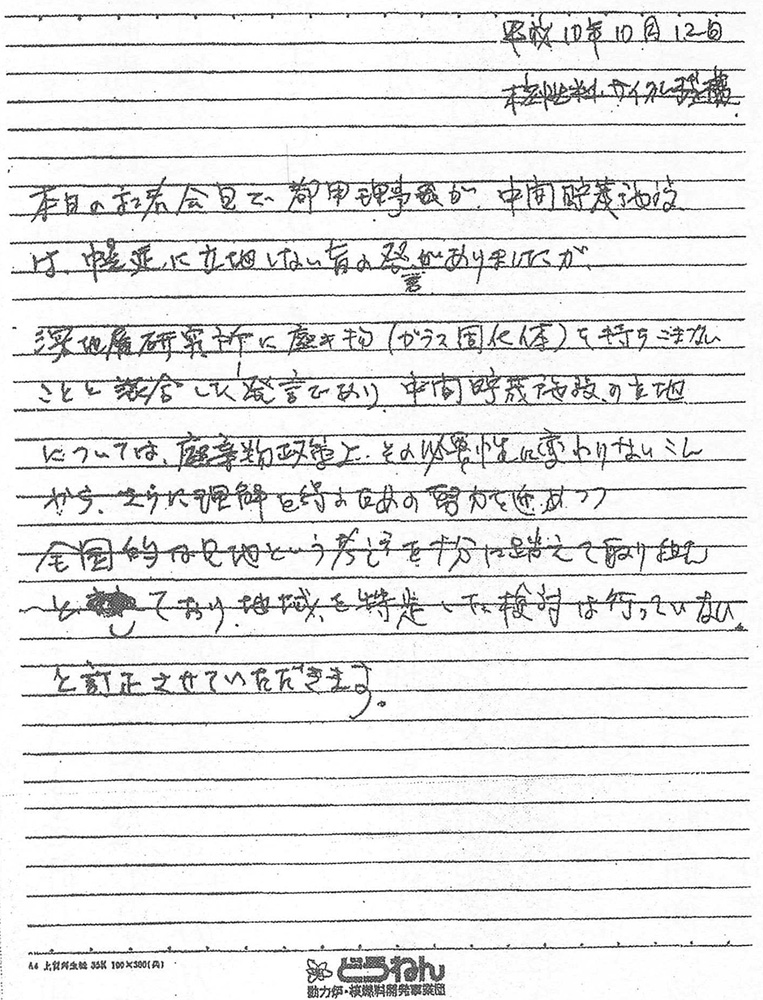 平成10年10月12日
核燃料サイクル機構
本日の記者会見で、都甲理事長が、中間貯蔵施設
は、幌延に立地しない旨の発言がありましたが、
深地層研究所に廃棄物(ガラス固化体)を持ちこまない
ことと混合した発言であり、中間貯蔵施設の立地
については、廃棄物政策上、その必要性に変わりないこと
から、さらに理解を得るための努力を進めつつ
全国的な見地という考え方を十分に踏まえて取り組む
としており、地域を特定した検討は行っていない。
と訂正させていただきます。
A4 上質再生紙 35K 100×300(共)
どうねん
動力炉・核燃料開発事業団